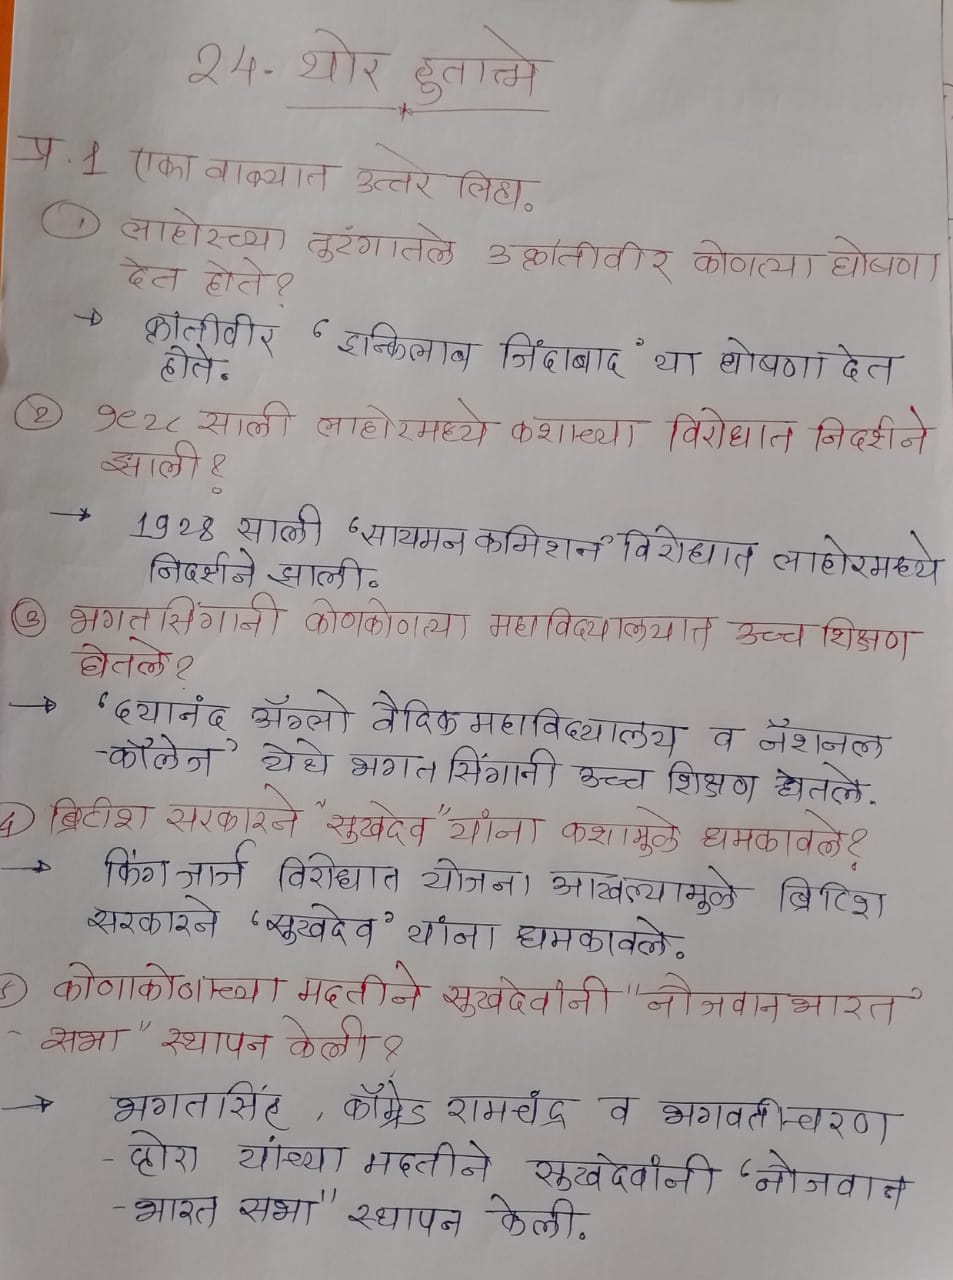 24. थोर हुतात्मे
प्र. 1 एका वाक्यात उत्तरे लिहा.
① लाहोरच्या तुरंगातले 3 क्रांतीवीर कोणत्या घोषणा
देत होते?
→ क्रांतीवीर 'इन्किलाब जिंदाबाद' या घोषणा देत
होते.
② १९२८ साली लाहोरमध्ये कशाच्या विरोधात निदर्शने
झाली?
→ 1928 साली 'सायमन कमिशन' विरोधात लाहोरमध्ये
निदर्शने झाली.
③ भगतसिंगानी कोणकोणत्या महाविद्यालयात उच्च शिक्षण
घेतले?
→ 'दयानंद अँग्लो वैदिक महाविद्यालय व नॅशनल
-कॉलेज' येथे भगत सिंगानी उच्च शिक्षण घेतले.
4) ब्रिटीश सरकारने "सुखदेव" यांना कशामुळे धमकावले?
→ किंग जार्ज विरोधात योजना आखल्यामुळे ब्रिटिश
सरकारने 'सुखदेव' यांना धमकावले.
5) कोणाकोणाच्या मदतीने सुखदेवांनी "नौजवान भारत
- सभा" स्थापन केली?
→ भगतसिंह, कॉम्रेड रामचंद्र व भगवतीचरण
- व्होरा यांच्या मदतीने सुखदेवांनी 'नौजवान
- भारत सभा" स्थापन केली.